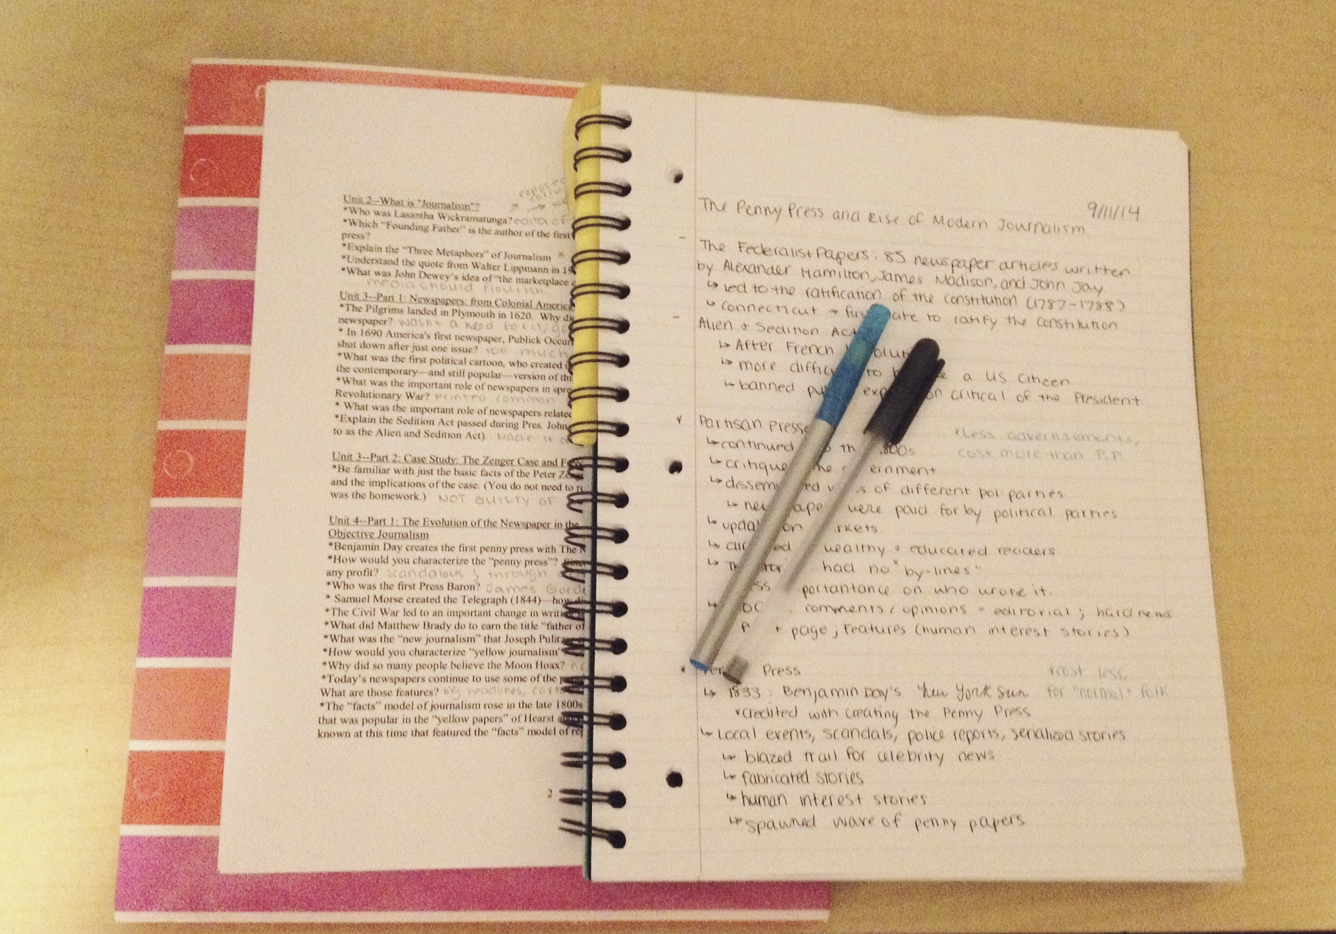 Unit 2--What is "Journalism"?
*Who was Lasantha Wickramatunga? editor of
*Which "Founding Father" is the author of the first
press?
*Explain the "Three Metaphors" of Journalism
*Understand the quote from Walter Lippmann in 19
*What was John Dewey's idea of "the marketplace
media should flourish
Unit 3--Part 1: Newspapers: from Colonial America
*The Pilgrims landed in Plymouth in 1620. Why did
newspaper? wasn't a need for it;
* In 1690 America's first newspaper, Publick Occur
shut down after just one issue? too much
*What was the first political cartoon, who created
the contemporary—and still popular—version of thi
*What was the important role of newspapers in spre
Revolutionary War? Printed common
* What was the important role of newspapers related
*Explain the Sedition Act passed during Pres. John
to as the Alien and Sedition Act). Made it
Unit 3--Part 2: Case Study: The Zenger Case and F
*Be familiar with just the basic facts of the Peter Ze
and the implications of the case. (You do not need to
was the homework.) NOT GUILTY OF
Unit 4--Part 1: The Evolution of the Newspaper in the
Objective Journalism
*Benjamin Day creates the first penny press with The
*How would you characterize the "penny press"?
any profit? scandalous; through
*Who was the first Press Baron? James Gord
* Samuel Morse created the Telegraph (1844)—how
*The Civil War led to an important change in writi
*What did Matthew Brady do to earn the title "father of
*What was the "new journalism" that Joseph Pulitz
*How would you characterize "yellow journalism"
*Why did so many people believe the Moon Hoax?
*Today's newspapers continue to use some of the
What are those features? big headlines,
*The "facts" model of journalism rose in the late 1800s
that was popular in the "yellow papers" of Hearst
known at this time that featured the "facts" model of re
2
9/11/14
The Penny Press and Rise of Modern Journalism
- The Federalist Papers: 85 newspaper articles written
by Alexander Hamilton, James Madison, and John Jay
↳ led to the ratification of the constitution (1787-1788)
↳ Connecticut → fir ate to ratify the Constitution
- Alien & Sedition Ac
↳ After French olut
↳ more diffic to b e a US Citizen
↳ banned pu exp on critical of the President
* Partisan Press
↳ continued to th 800s
*Less advertisements,
cost more than P.P.
↳ critique the ernment
↳ dissem ed v s of different pol parties
↳ new ape were paid for by political parties
↳ updat on arkets
↳ wealthy & educated readers
↳ had no "by-lines"
ss portantance on who wrote it.
↳ comments/opinions = editorial; hard news
+ page; Features (human interest stories)
* Press
*cost less,
for "normal" folk
↳ 1833: Benjamin Day's New York Sun
*credited with creating the Penny Press
↳ Local events, scandals, police reports, serialized stories
↳ blazed trail for celebrity news
↳ fabricated stories
↳ human interest stories
↳ spawned wave of penny papers